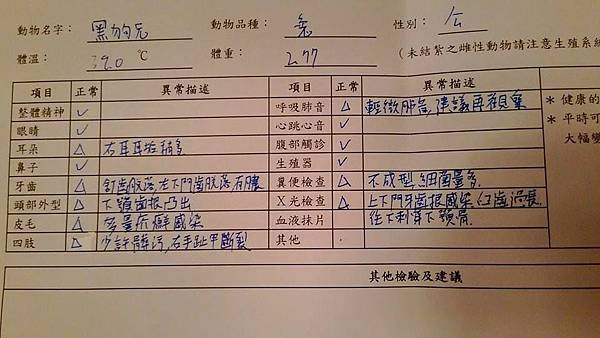 動物名字: 黑狗兄 動物品種: 兔 性別: 公
體溫: 39.0 ℃ 體重: 277 (未結紮之雌性動物請注意生殖系統
項目 正常 異常描述 項目 正常 異常描述
整體精神 ✓ 呼吸肺音 △ 輕微肺音,建議再觀察
眼睛 ✓ 心跳心音 ✓
耳朵 △ 右耳耳垢稍多 腹部觸診 ✓
鼻子 ✓ 生殖器 ✓
牙齒 △ 左下門齒脫落有膿 糞便檢查 △ 不成型,細菌量多
頭部外型 △ 下顎齒根凸出 X光檢查 △ 上下門牙齒根感染,臼齒過長
往下刺穿下顎骨
皮毛 △ 多量疥癬感染 血液抹片
四肢 △ 少許髒污,右手趾甲斷裂 其他
* 健康的
* 平時可
大幅變
其他檢驗及建議